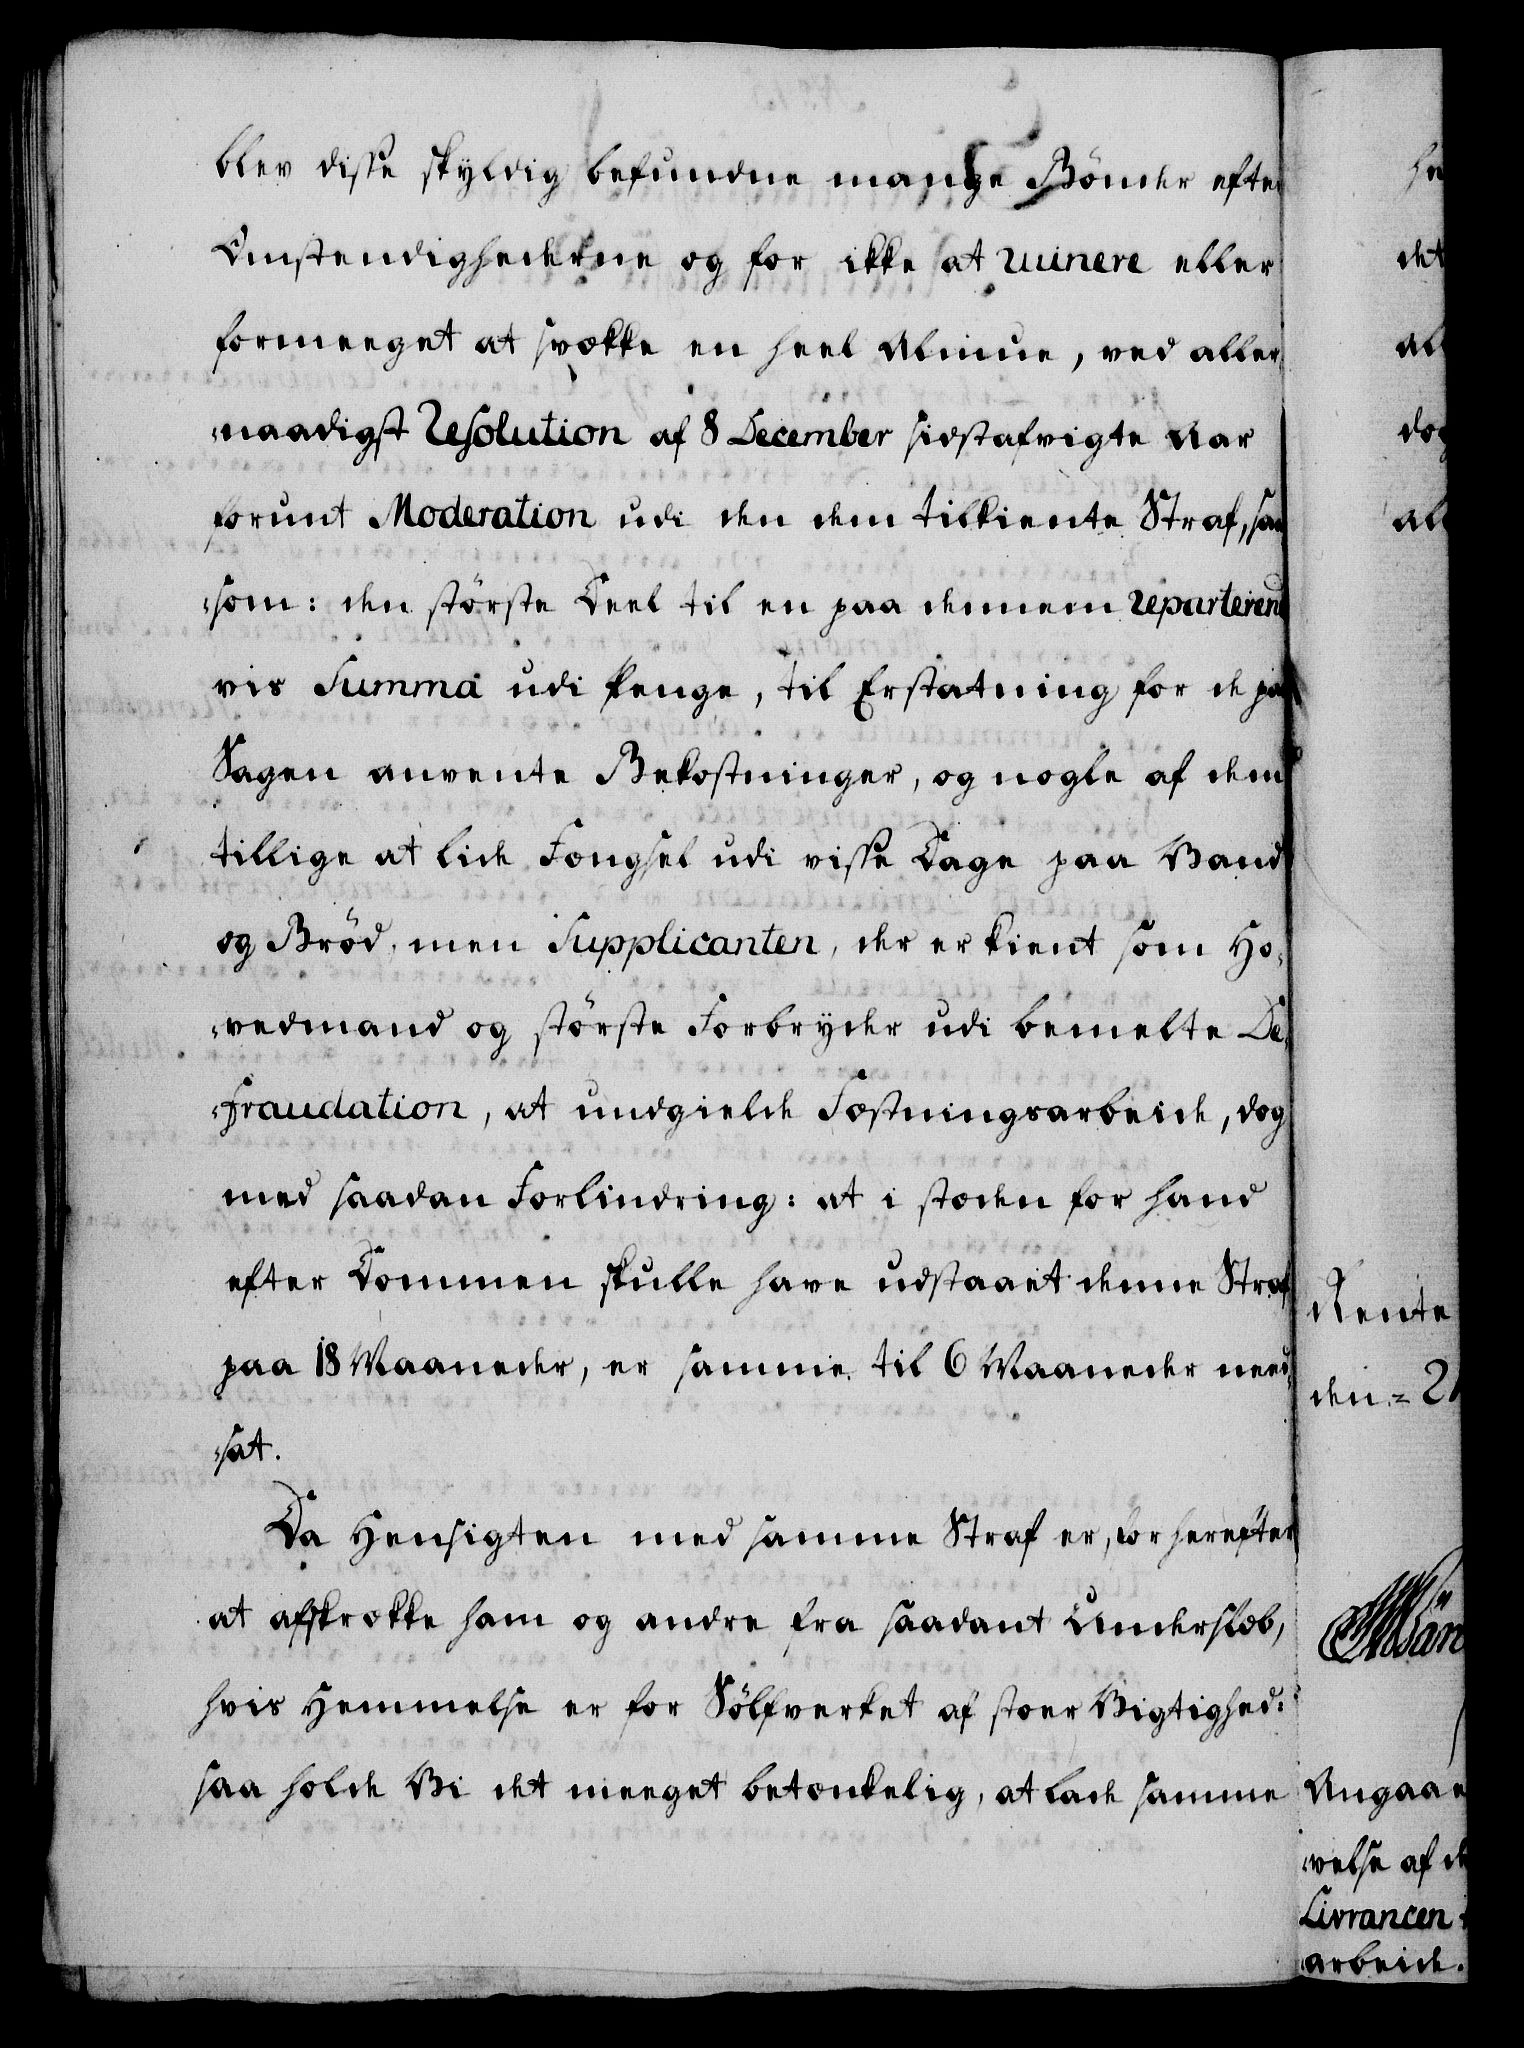 blev disse skyldig befundne mange Bönder efter
Omstendighederne og for ikke at ruinere eller
formeeget at svække en heel Almue, ved aller-
naadigst Resolution af 8 December sidstafvigte Aar
forunt Moderation udi den dem tilkiente Straf, saa
som: den störste Deel til en paa dennem reparterend
vis Summa udi Penge, til Erstatning for de paa
Sagen anvente Bekostninger, og nogle af dem
tillige at lide Fængsel udi visse Dage paa Vand
og Bröd, men Supplicanten, der er kient som Ho-
vedmand og störste Forbryder udi bemelte De-
fraudation, at undgielde Fæstningsarbeide, dog
med saadan Forlindring: at i stæden for hand
efter Dommen skulle have udstaaet denne Straf
paa 18 Maaneder, er samme til 6 Maaneder need-
sat.
Da Hensigten med samme Straf er, for herefter
at afskrække ham og andre fra saadant Underslæb,
hvis Hemmelse er for Sölfverket af stoer Vigtighed:
saa holde Vi det meeget betænkelig, at lade samme
he
det
all
dog
all
Rente
den = 21
Angaaen
velse af de
Livrancen
arbeide.